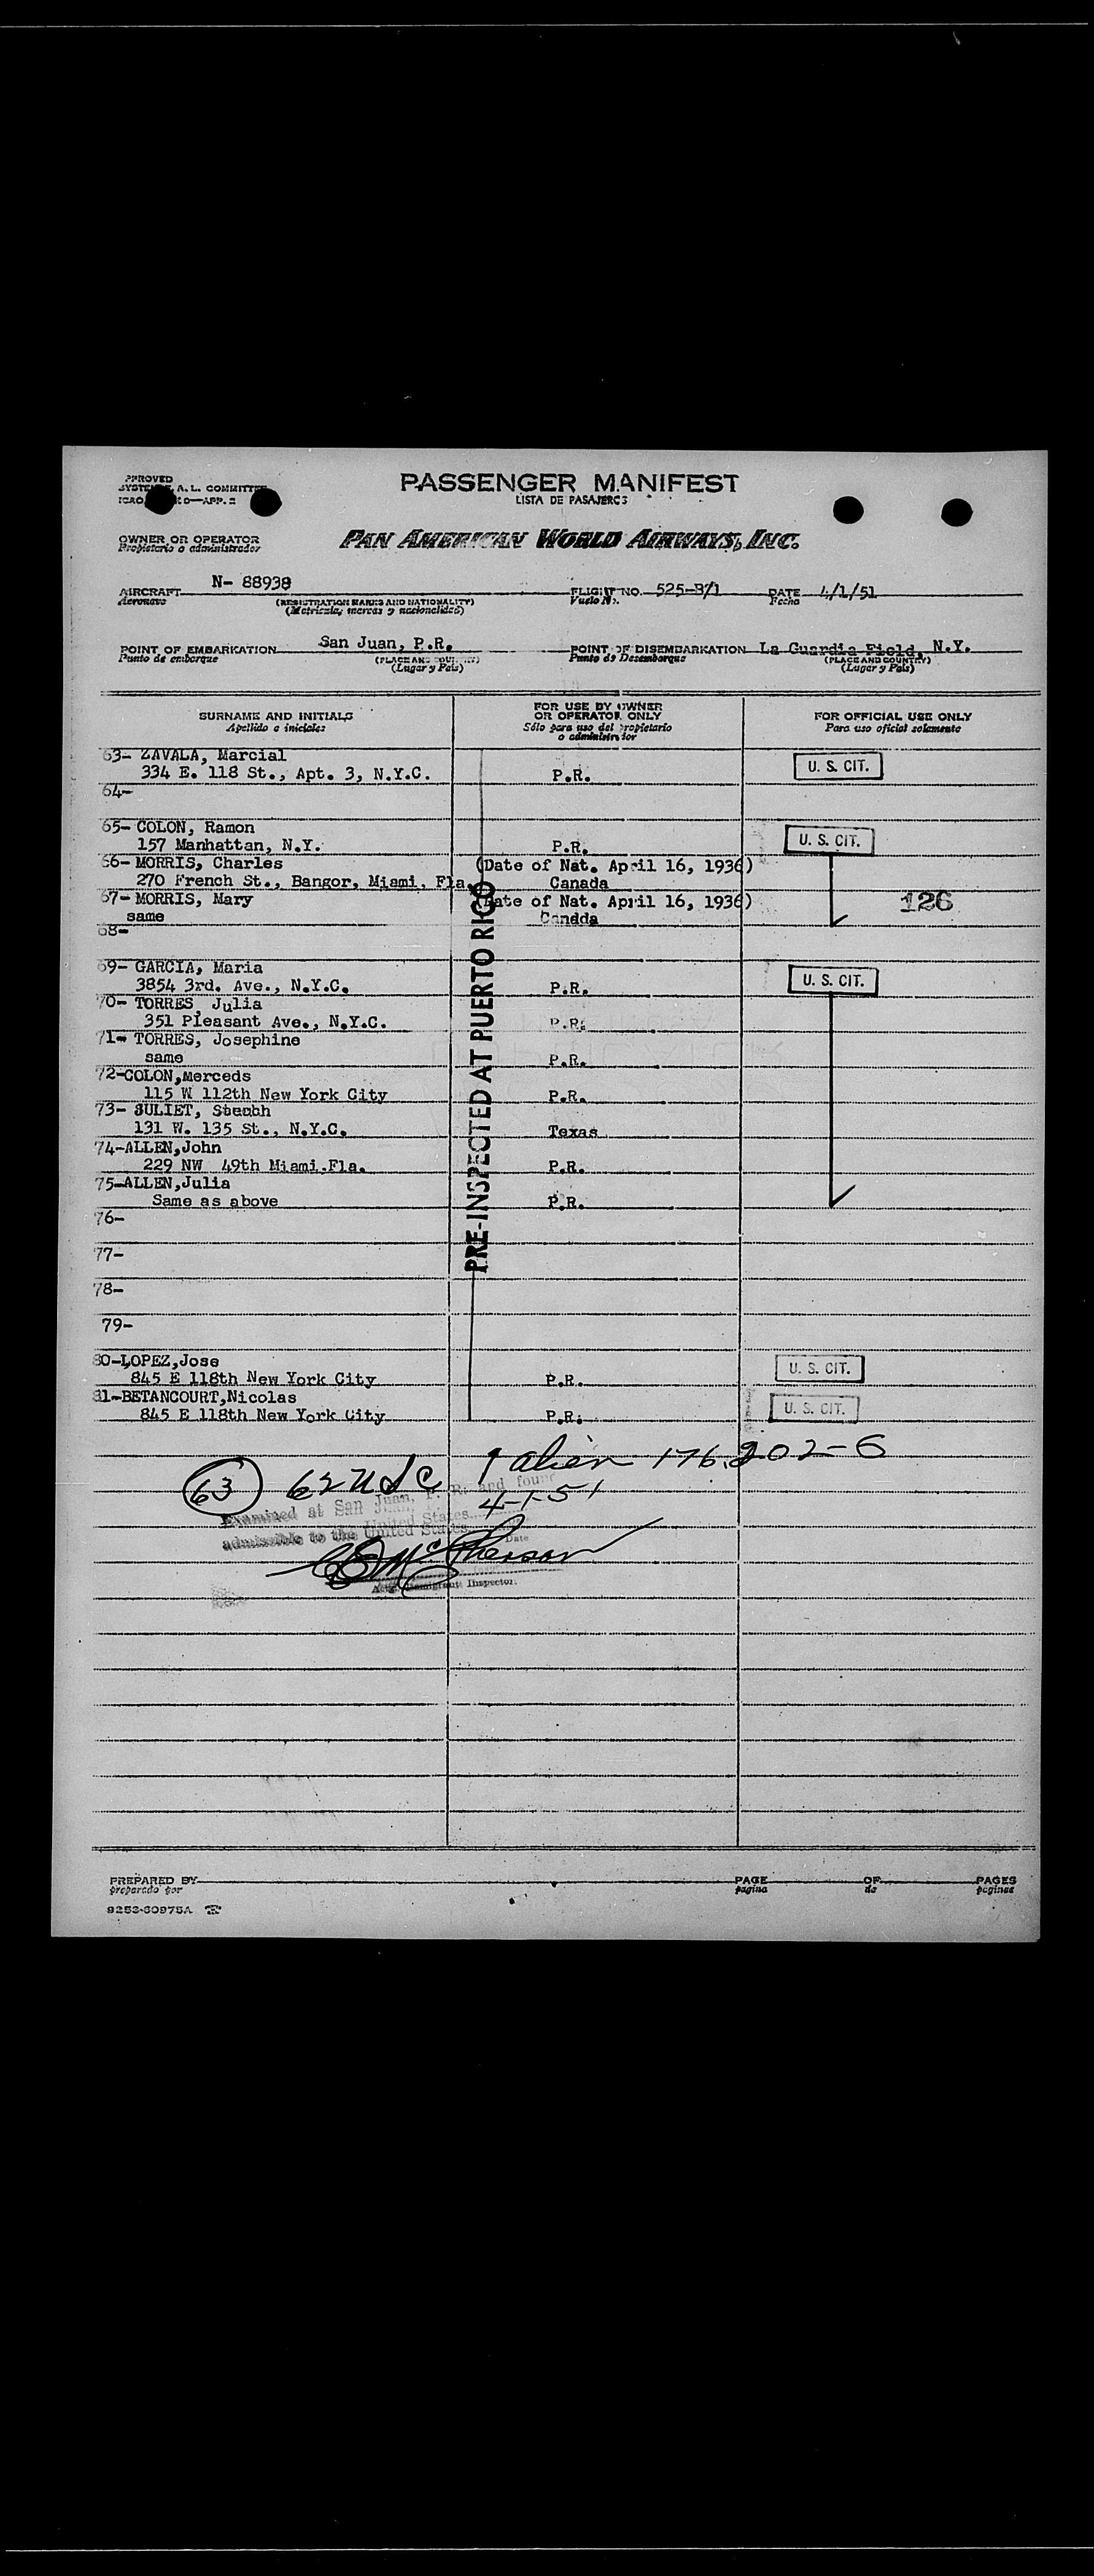 PPROVED
A. L. COMMITTEE
PASSENGER MANIFEST
LISTA DE PASAJEROS
OWNER OR OPERATOR
Propietario o administrador
PAN AMERICAN WORLD AIRWAYS, INC.
AIRCRAFT N- 88938 FLIGHT NO. 525-3/1 DATE 4/1/51
Aeronave (REGISTRATION MARKS AND NATIONALITY) Vuelo No. Fecha
(Matricula, marcas y nacionalidad)
POINT OF EMBARKATION San Juan, P.R. POINT OF DISEMBARKATION La Guardia Field, N.Y.
Punto de embarque (PLACE AND COUNTRY) Punto de Desembarque (PLACE AND COUNTRY)
(Lugar y País) (Lugar y País)
SURNAME AND INITIALS
Apellido e iniciales
FOR USE BY OWNER
OR OPERATOR ONLY
Sólo para uso del propietario
o administrador
FOR OFFICIAL USE ONLY
Para uso oficial solamente
63- ZAVALA, Marcial
334 E. 118 St., Apt. 3, N.Y.C. P.R. U. S. CIT.
64-
65- COLON, Ramon
157 Manhattan, N.Y. P.R. U. S. CIT.
66- MORRIS, Charles (Date of Nat. April 16, 1936)
270 French St., Bangor, Miami, Fla. Canada
67- MORRIS, Mary (Date of Nat. April 16, 1936) 126
same Candda
68-
69- GARCIA, Maria
3854 3rd. Ave., N.Y.C. P.R. U. S. CIT.
70- TORRES, Julia
351 Pleasant Ave., N.Y.C. P.R.
71- TORRES, Josephine
same P.R.
72-COLON,Merceds
115 W 112th New York City P.R.
73- JULIET,
131 W. 135 St., N.Y.C. Texas
74-ALLEN,John
229 NW 49th Miami.Fla. P.R.
75-ALLEN,Julia
Same as above P.R.
76-
77-
78-
79-
80-LOPEZ,Jose
845 E 118th New York City P.R. U. S. CIT.
81-BETANCOURT,Nicolas
845 E 118th New York City P.R. U. S. CIT.
PRE-INSPECTED AT PUERTO RICO
63 62 USC 1 alien 176.202-6
Examined at San Juan, P. R. and found
4-1-51
admissible to the United States
Date
McPherson
Immigrant Inspector.
PREPARED BY PAGE OF PAGES
preparado por pagina de paginas
9253-60975A